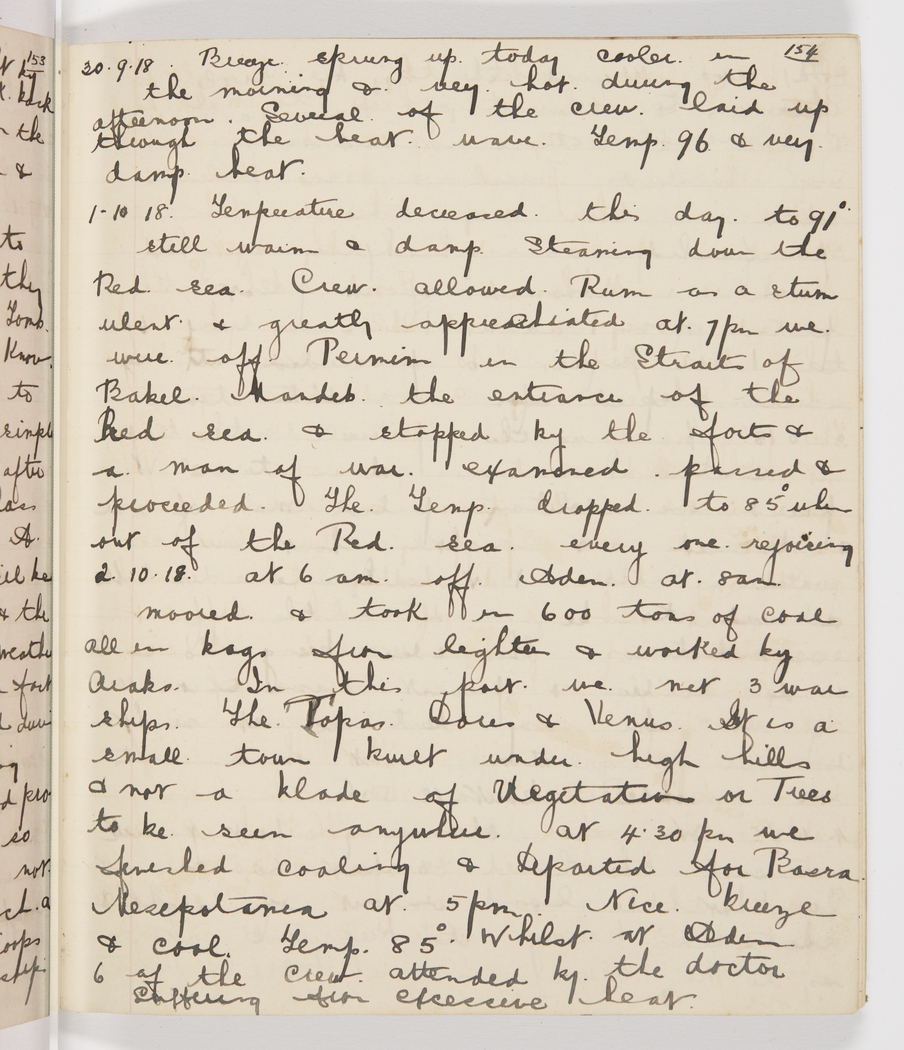 154
30.9.18. Breeze sprung up. today cooler. in
the morning &. very. hot. during the
afternoon. Several of the crew. laid up
through the heat. wave. Temp. 96 & very.
damp heat.
1-10 18. Temperature decreased. this day. to 91°.
still warm & damp. Steaming down the
Red. sea. Crew. allowed. Rum as a stum
ulent. & greatly appreachiated at. 7pm we.
were. off Permim in the Straits of
Babel. Mandeb. the entrance of the
Red sea. & stopped by the forts &
a. man of war. examened. passed &
proceeded. The. Temp. dropped. to 85° when
out of the Red. sea. every one. rejoicing
2.10.18. at 6 am. off. Aden. at. 8am.
moored. & took in 600 tons of coal
all in bags from lighters & worked by
Arabs. In this port. we. met 3 war
ships. The. Topas. Doris & Venus. It is a
small. town built under. high hills
& not a blade of Vegetation or Trees
to be. seen anywhere. at 4.30 pm we
finished coaling & Departed for Basra.
Mesepotamia at. 5pm. Nice. breeze
& cool. Temp. 85°. Whilst. at Aden
6 of the Crew. attended by. the doctor
suffering from excessive heat.
153
to
they
Tomb.
Know.
to
after
&
&
A.
& the
so
not.